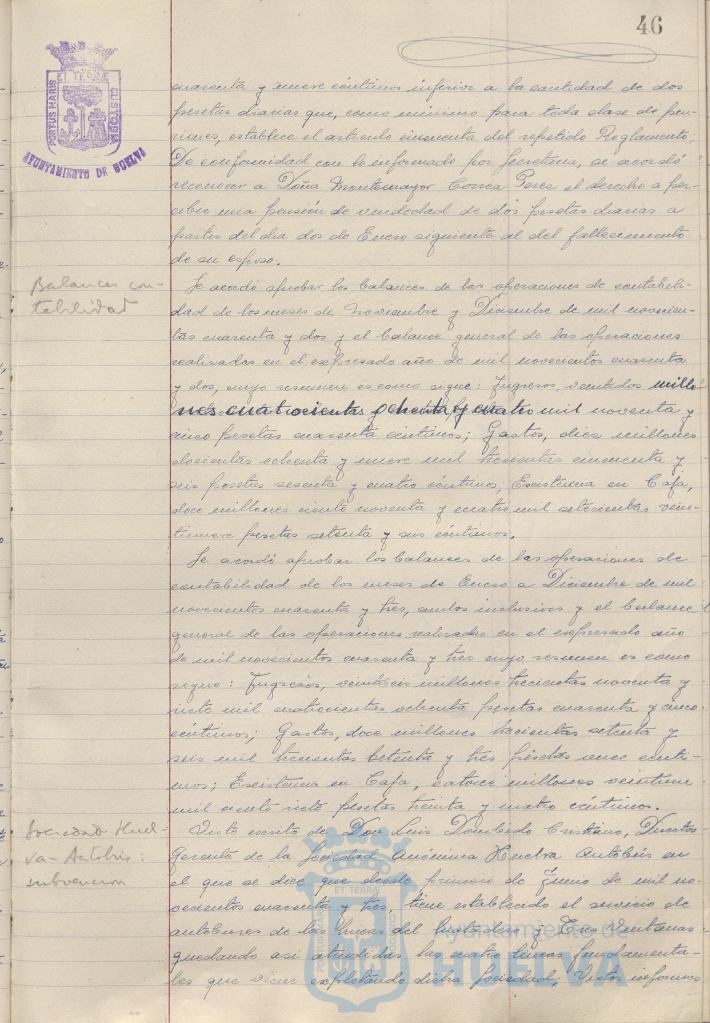 46
PORTUS MARIS ET TERRAE CUSTODIA
AYUNTAMIENTO DE HUELVA
cuarenta y nueve céntimos inferior a la cantidad de dos
pesetas diarias que, como mínimo para toda clase de pen-
siones, establece el artículo cincuenta del repetido Reglamento.
De conformidad con lo informado por Secretaría, se acordó
reconocer a Doña Montemayor Correa Perez el derecho a per-
cibir una pensión de viudedad de dos pesetas diarias a
partir del día dos de Enero siguiente al del fallecimiento
de su esposo.
Balances con-
tabilidad
Se acordó aprobar los balances de las operaciones de contabili-
dad de los meses de Noviembre y Diciembre de mil novecien-
tos cuarenta y dos y el balance general de las operaciones
realizadas en el expresado año de mil novecientos cuarenta
y dos, cuyo resumen es como sigue: Ingresos, veintidos millo-
nes cuatrocientas ochenta y cuatro mil noventa y
cinco pesetas cuarenta céntimos; Gastos, diez millones
doscientas ochenta y nueve mil trescientas cincuenta y
seis pesetas sesenta y cuatro céntimos; Existencia en Caja,
doce millones ciento noventa y cuatro mil setecientas vein-
tinueve pesetas setenta y seis céntimos.
Se acordó aprobar los balances de las operaciones de
contabilidad de los meses de Enero a Diciembre de mil
novecientos cuarenta y tres, ambos inclusives y el balance
general de las operaciones realizadas en el expresado año
de mil novecientos cuarenta y tres cuyo resumen es como
sigue: Ingresos, veintiseis millones trescientas noventa y
siete mil cuatrocientas ochenta pesetas cuarenta y cinco
céntimos; Gastos, doce millones trescientas setenta y
seis mil trescientas setenta y tres pesetas once cénti-
mos; Existencia en Caja, catorce millones veintiun
mil ciento siete pesetas treinta y cuatro céntimos.
Sociedad Huel-
va-Autobús:
subvencion
Visto escrito de Don Luis Dombido Cristiano, Director
Gerente de la Sociedad Anónima Huelva Autobús en
el que se dice que desde primero de Junio de mil no-
vecientos cuarenta y tres, tiene establecido el servicio de
autobuses de las líneas del y Tres Ventanas
quedando así atendidas las cuatro líneas fundamenta-
les que viene explotando dicha Sociedad; Vistos informes
PORTUS MARIS ET TERRAE CUSTODIA
Ayuntamiento de
HUELVA